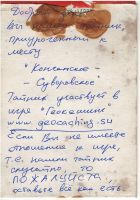 Добр
Вы
приуроченный к
месту
"Кончанско-
Суворовское
Тайник участвует в
игре "Геокешинг"
www.geocaching.su
Если Вы не имеете
отношения к игре,
т.е. нашли тайник
случайно то
ПОЖАЛУЙСТА
оставьте все как есть.